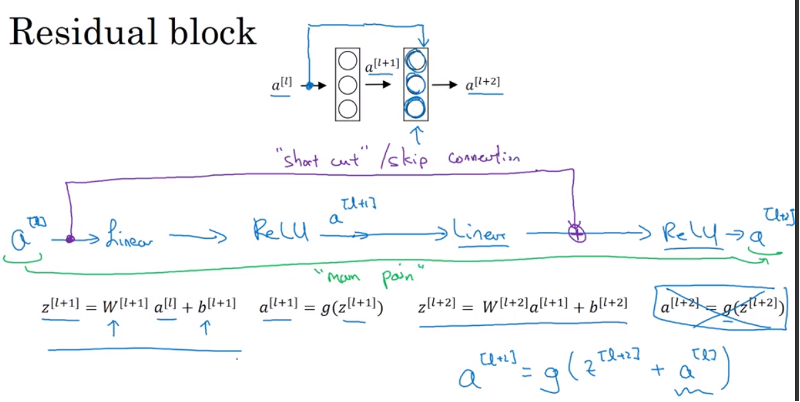 Residual block
a^[l] a^[l+1] a^[l+2]
"short cut" / skip connection
a^[l] → Linear → ReLU a^[l+1] → Linear → ⊕ → ReLU → a^[l+2]
"main path"
z^[l+1] = W^[l+1] a^[l] + b^[l+1] a^[l+1] = g(z^[l+1]) z^[l+2] = W^[l+2]a^[l+1] + b^[l+2] a^[l+2] = g(z^[l+2])
a^[l+2] = g(z^[l+2] + a^[l])